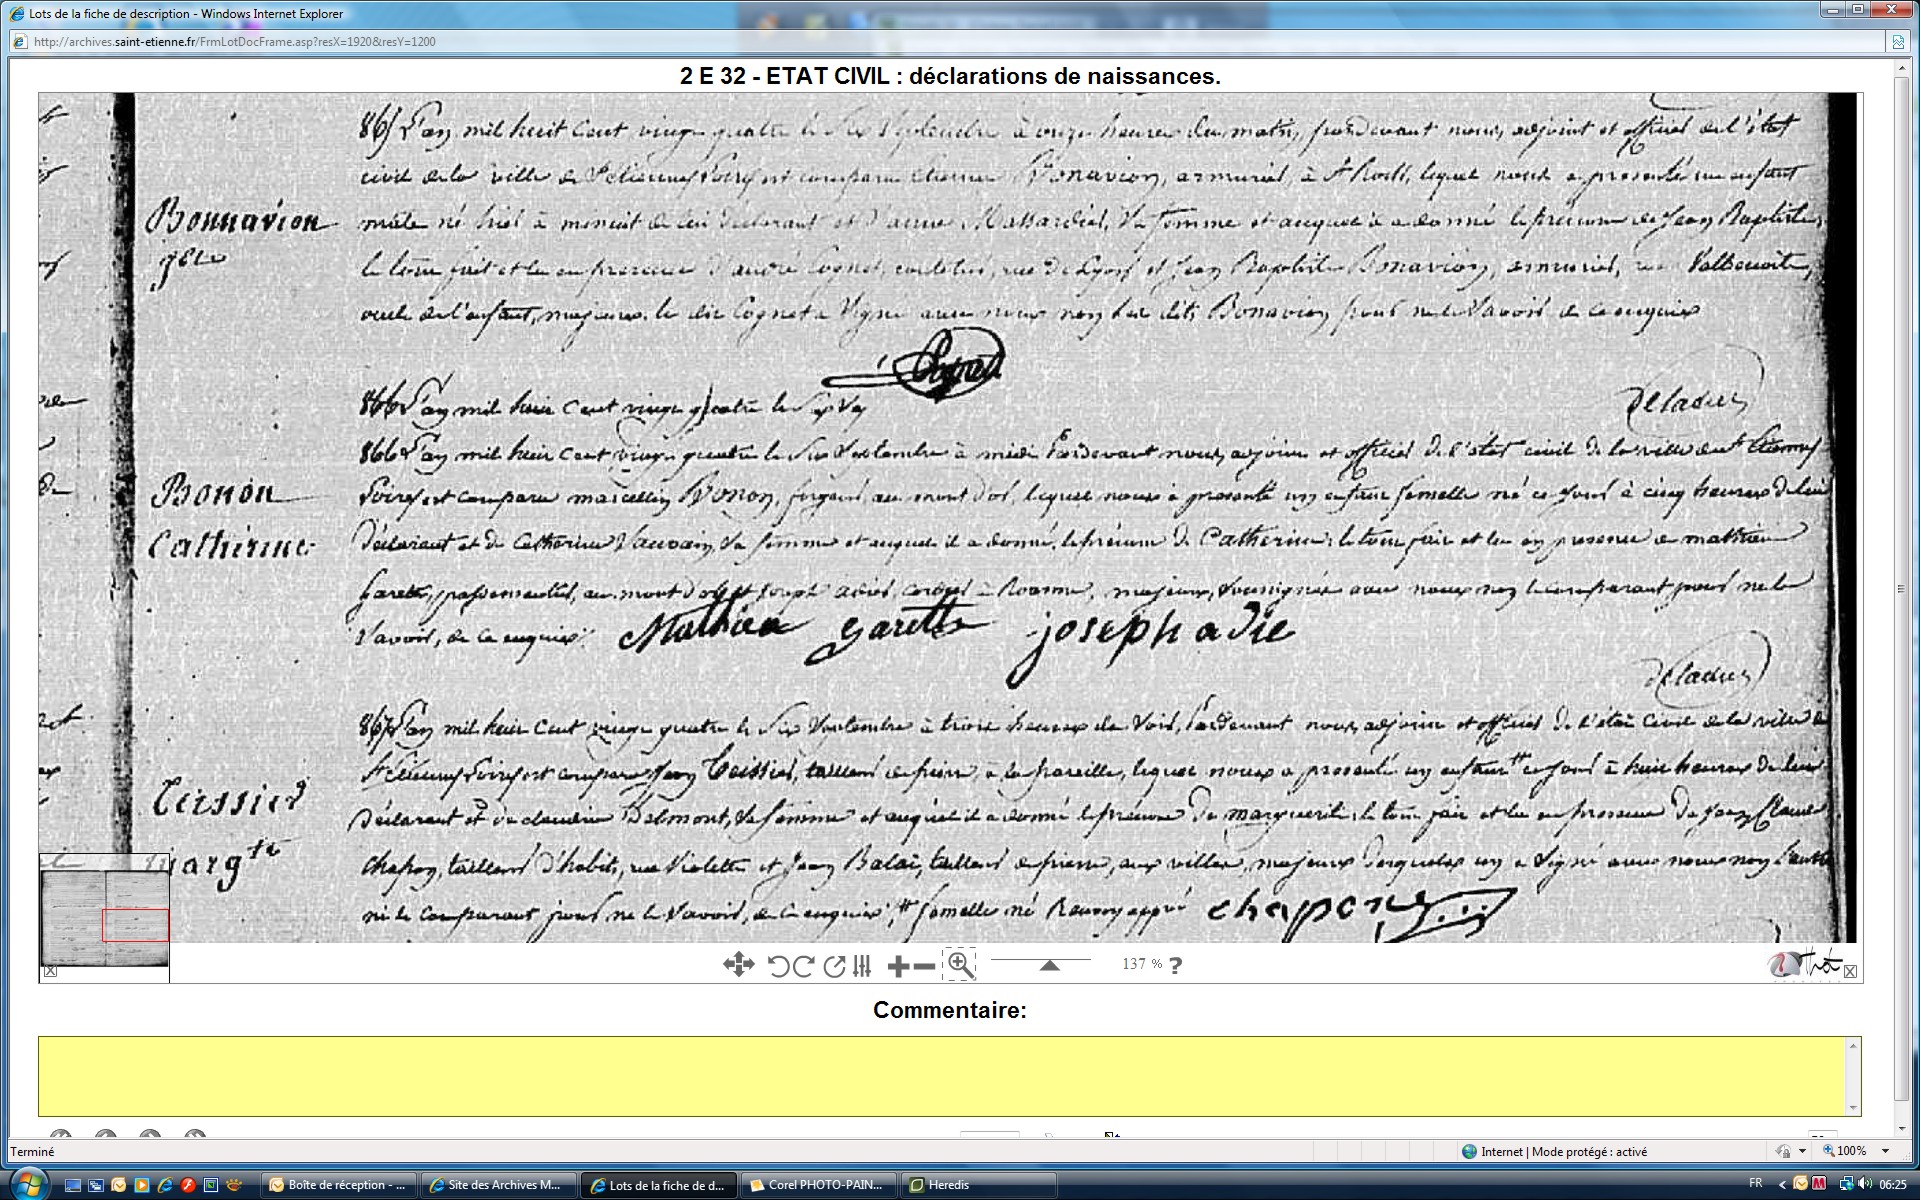 Lots de la fiche de description - Windows Internet Explorer
http://archives.saint-etienne.fr/FrmLotDocFrame.asp?resX=1920&resY=1200
2 E 32 - ETAT CIVIL : déclarations de naissances.
865 L'an mil huit cent vingt quatre le six septembre à onze heures du matin, pardevant nous, adjoint et officier de l'état
civil de la ville de St Etienne Loire est comparu Etienne Bonavion, armurier, à St Roch, lequel nous a présenté un enfant
Bonnavion
mâle né hier à minuit de lui déclarant et d'anne Massardier, sa femme et auquel il a donné le prénom de Jean Baptiste,
jBte
le tout fait et lu en présence d'andré Cognet, coutelier, rue de Lyon et Jean Baptiste Bonavion, armurier, rue Valbenoite,
oncle de l'enfant, majeurs. le dit Cognet a signé avec nous non les dits Bonavion pour ne le savoir de ce enquis
Cognet
866 L'an mil huit cent vingt quatre le six
866 L'an mil huit cent vingt quatre le six septembre à midi Pardevant nous, adjoint et officier de l'état civil de la ville de St Etienne
Bonon
Loire est comparu marcellin Bonon, forgeur, au mont d'or, lequel nous a présenté un enfant femelle né ce jour à cinq heures de lui
Catherine
déclarant et de Catherine sa femme et auquel il a donné le prénom de Catherine; le tout fait et lu en présence de mathieu
Garette, passementier, au mont d'or et joseph adier, à Roanne, majeurs, soussignés avec nous non le comparant pour ne le
savoir, de ce enquis.
Mathieu garette joseph adie
867 L'an mil huit cent vingt quatre le six septembre à trois heures du soir, Pardevant nous, adjoint et officier de l'état civil de la ville de
St Etienne Loire est comparu Jean Teissier, tailleur de pierre, à la pareille, lequel nous a présenté un enfant ce jour à huit heures de lui
Teissier
déclarant et de claudine Dalmont, sa femme et auquel il a donné le prénom de marguerite; le tout fait et lu en présence de Jean Claude
Margte
chapon, tailleur d'habits, rue Violette et Jean Balaÿ, tailleur de pierre, aux villes, majeurs desquels un a signé avec nous non l'autre
ni le comparant pour ne le savoir, de ce enquis; femelle né Renvoy appvé
chapon
137 % ?
Commentaire:
Terminé
Internet | Mode protégé : activé
100%
Boîte de réception - ...
Site des Archives M...
Lots de la fiche de d...
Corel PHOTO-PAIN...
Heredis
FR
06:25